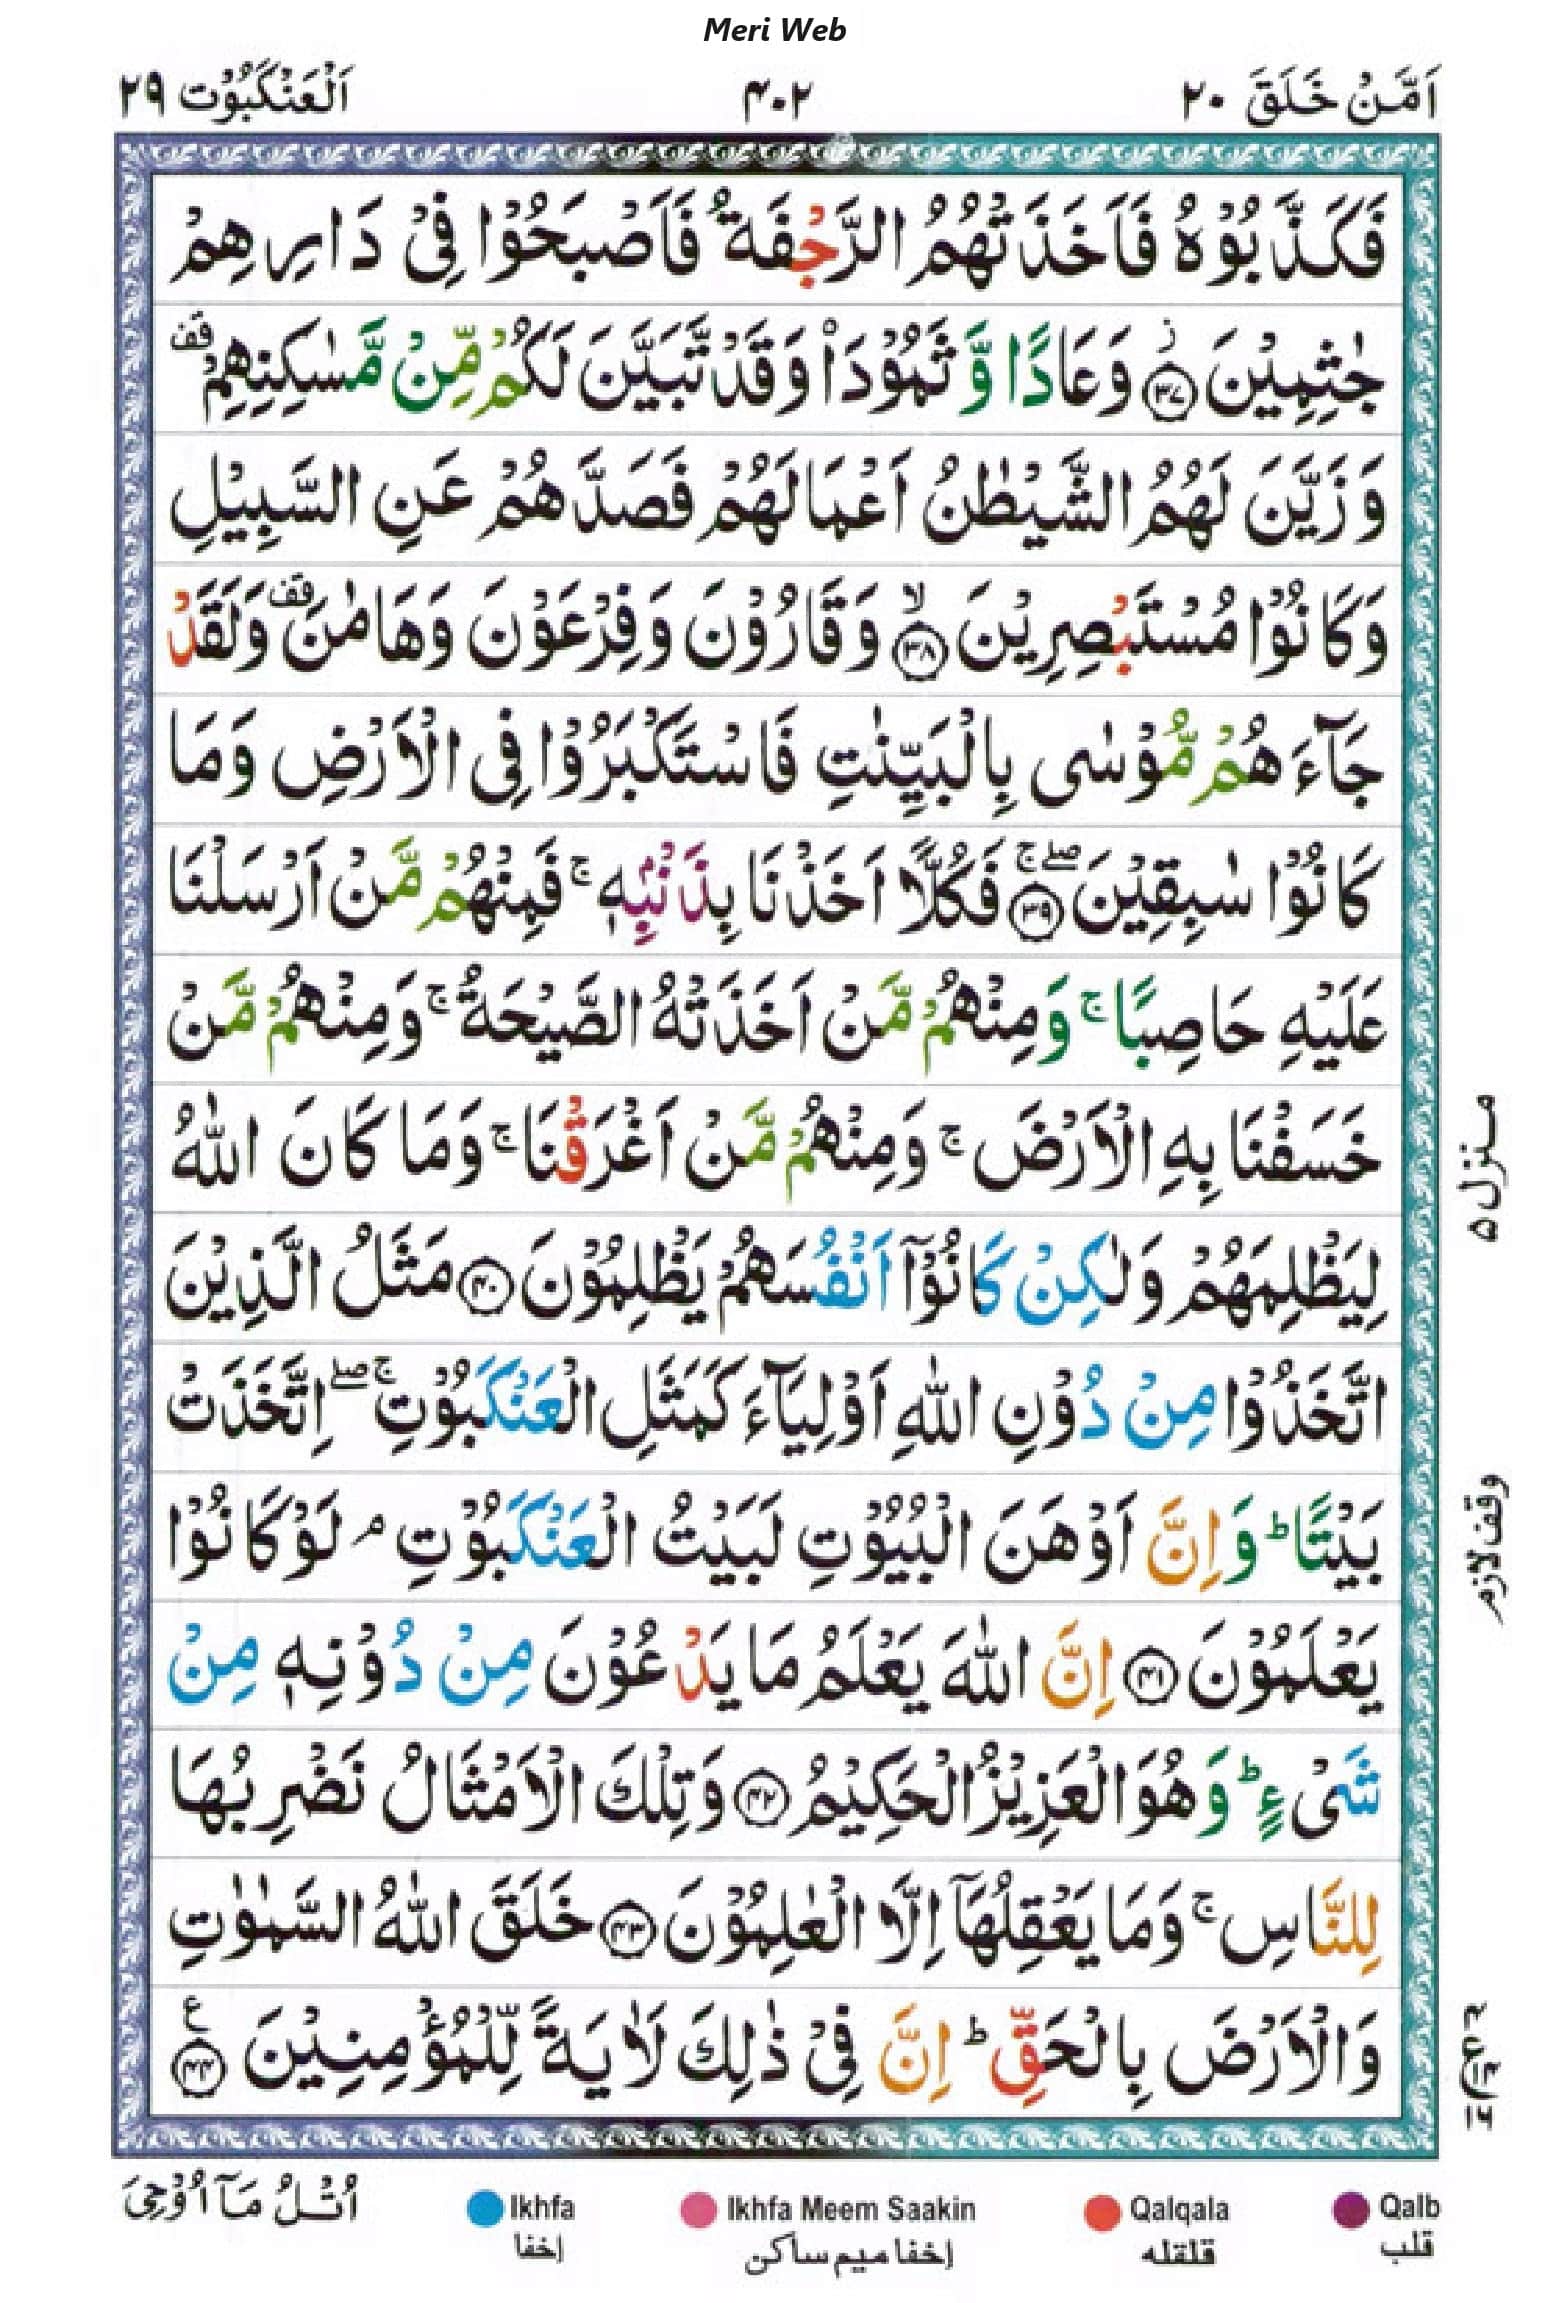 Meri Web
اَمَّنْ خَلَقَ ٢٠ ۴٠٢ اَلْعَنْكَبُوْت ٢٩
فَكَذَّبُوْهُ فَاَخَذَتْهُمُ الرَّجْفَةُ فَاَصْبَحُوْا فِیْ دَارِهِمْ
جٰثِمِیْنَ ﴿۳۷﴾ؗ وَعَادًا وَّ ثَمُوْدَاۡ وَقَدْ تَّبَیَّنَ لَكُمْ مِّنْ مَّسٰكِنِهِمْ ۫قف
وَزَیَّنَ لَهُمُ الشَّیْطٰنُ اَعْمَالَهُمْ فَصَدَّهُمْ عَنِ السَّبِیْلِ
وَكَانُوْا مُسْتَبْصِرِیْنَ ﴿۳۸﴾ۙ وَقَارُوْنَ وَفِرْعَوْنَ وَهَامٰنَ قف وَلَقَدْ
جَآءَهُمْ مُّوْسٰی بِالْبَیِّنٰتِ فَاسْتَكْبَرُوْا فِی الْاَرْضِ وَمَا
كَانُوْا سٰبِقِیْنَ ﴿۳۹﴾ۖۚ فَكُلًّا اَخَذْنَا بِذَنْۢبِهٖ ۚ فَمِنْهُمْ مَّنْ اَرْسَلْنَا
عَلَیْهِ حَاصِبًا ۚ وَمِنْهُمْ مَّنْ اَخَذَتْهُ الصَّیْحَةُ ۚ وَمِنْهُمْ مَّنْ
خَسَفْنَا بِهِ الْاَرْضَ ۚ وَمِنْهُمْ مَّنْ اَغْرَقْنَا ۚ وَمَا كَانَ اللّٰهُ
لِیَظْلِمَهُمْ وَلٰكِنْ كَانُوْۤا اَنْفُسَهُمْ یَظْلِمُوْنَ ﴿۴۰﴾ مَثَلُ الَّذِیْنَ
اتَّخَذُوْا مِنْ دُوْنِ اللّٰهِ اَوْلِیَآءَ كَمَثَلِ الْعَنْكَبُوْتِ ۖۚ اِتَّخَذَتْ
بَیْتًا ؕ وَاِنَّ اَوْهَنَ الْبُیُوْتِ لَبَیْتُ الْعَنْكَبُوْتِ ۘ لَوْ كَانُوْا
یَعْلَمُوْنَ ﴿۴۱﴾ اِنَّ اللّٰهَ یَعْلَمُ مَا یَدْعُوْنَ مِنْ دُوْنِهٖ مِنْ
شَیْءٍ ؕ وَهُوَ الْعَزِیْزُ الْحَكِیْمُ ﴿۴۲﴾ وَتِلْكَ الْاَمْثَالُ نَضْرِبُهَا
لِلنَّاسِ ۚ وَمَا یَعْقِلُهَاۤ اِلَّا الْعٰلِمُوْنَ ﴿۴۳﴾ خَلَقَ اللّٰهُ السَّمٰوٰتِ
وَالْاَرْضَ بِالْحَقِّ ؕ اِنَّ فِیْ ذٰلِكَ لَاٰیَةً لِّلْمُؤْمِنِیْنَ ﴿۴۴﴾ع
منزل ۵
وقف لازم
اُتْلُ مَاۤ اُوْحِیَ
Ikhfa
إخفا
Ikhfa Meem Saakin
إخفا ميم ساكن
Qalqala
قلقله
Qalb
قلب